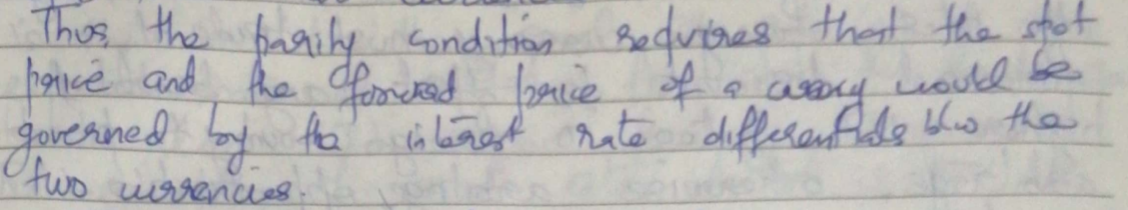 Thus, the parity condition requires that the spot
price and the forward price of a currency would be
governed by the interest rate differentials b/w the
two currencies.